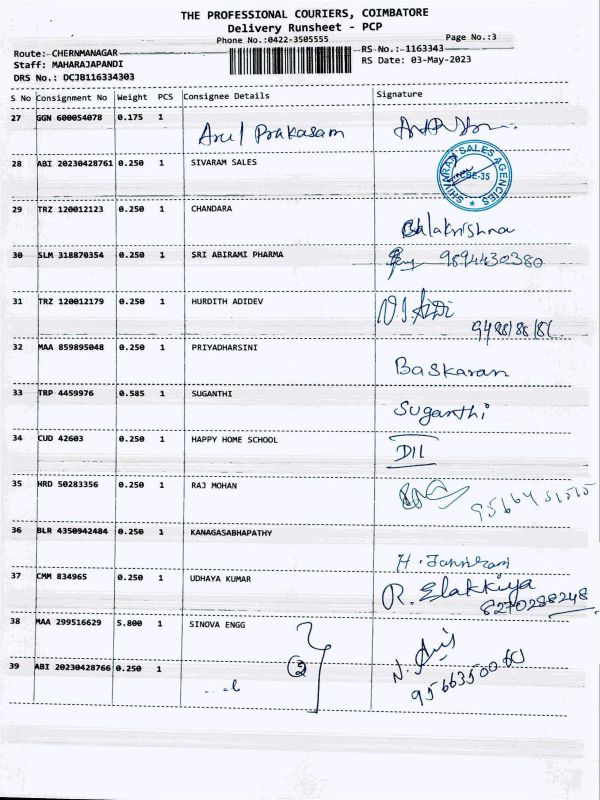 THE PROFESSIONAL COURIERS, COIMBATORE
Delivery Runsheet - PCP
Phone No.:0422-3505555
Page No.:3
Route: CHERNMANAGAR
RS No.:1163343
Staff: MAHARAJAPANDI
RS Date: 03-May-2023
DRS No.: DCJB116334303
S No Consignment No Weight PCS Consignee Details Signature
27 GGN 600054078 0.175 1 Arul Prakasam
28 ABI 20230428761 0.250 1 SIVARAM SALES SHIVARAM SALES AGENCIES CBE-35
29 TRZ 120012123 0.250 1 CHANDARA Balakrishna
30 SLM 318870354 0.250 1 SRI ABIRAMI PHARMA 9894430380
31 TRZ 120012179 0.250 1 HURDITH ADIDEV
32 MAA 859895048 0.250 1 PRIYADHARSINI Baskaran
33 TRP 4459976 0.585 1 SUGANTHI Suganthi
34 CUD 42603 0.250 1 HAPPY HOME SCHOOL
35 HRD 50283356 0.250 1 RAJ MOHAN
36 BLR 4350942484 0.250 1 KANAGASABHAPATHY
37 CMM 834965 0.250 1 UDHAYA KUMAR R. Elakkiya
8270288248
38 MAA 299516629 5.800 1 SINOVA ENGG
39 ABI 20230428766 0.250 1